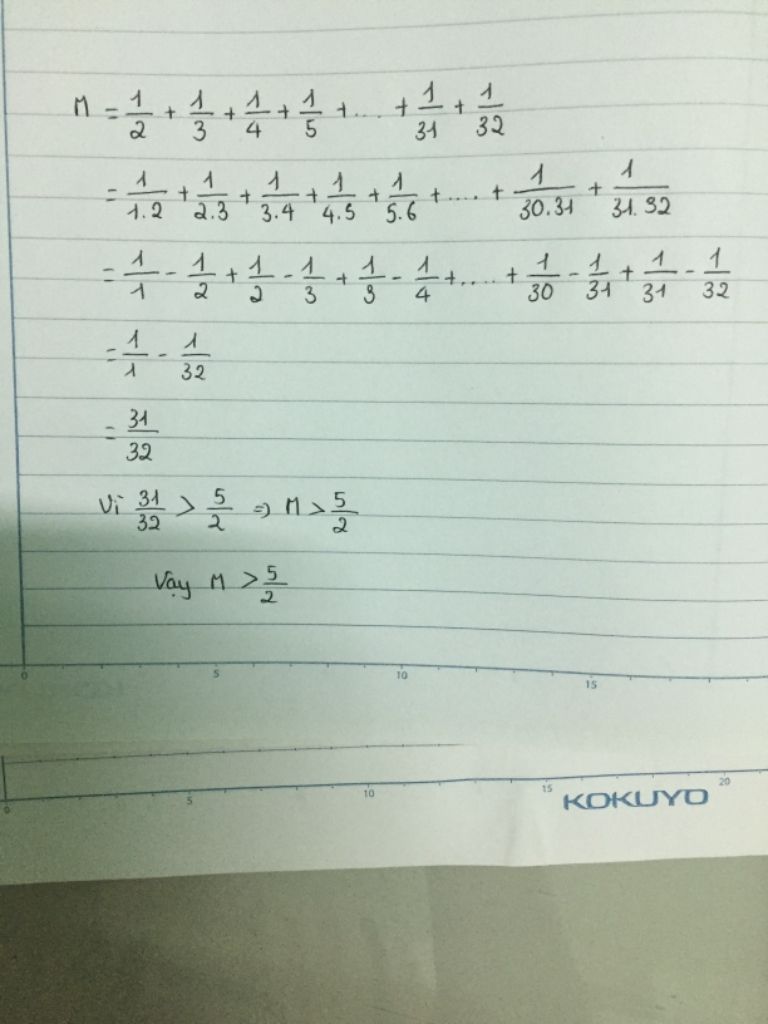 M = 1/2 + 1/3 + 1/4 + 1/5 + .... + 1/31 + 1/32
= 1/1.2 + 1/2.3 + 1/3.4 + 1/4.5 + 1/5.6 + .... + 1/30.31 + 1/31.32
= 1/1 - 1/2 + 1/2 - 1/3 + 1/3 - 1/4 + .... + 1/30 - 1/31 + 1/31 - 1/32
= 1/1 - 1/32
= 31/32
Vì 31/32 > 5/2 => M > 5/2
Vậy M > 5/2
0 5 10 15
0 5 10 15 20
KOKUYO